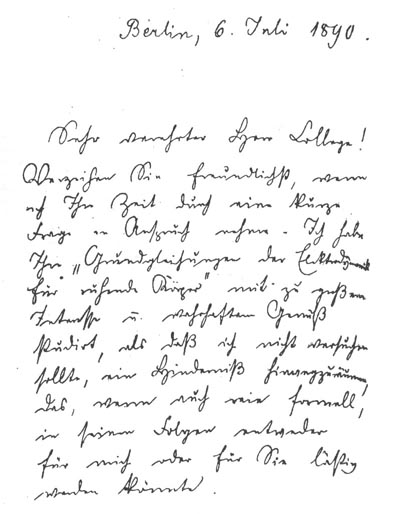 Berlin, 6. Juli 1890.
Sehr verehrter Herr College!
Verzeihen Sie freundlichst, wenn
ich Ihre Zeit durch eine kurze
Frage in Anspruch nehme. Ich habe
Ihre „Grundgleichungen der Elektrodynamik
für ruhende Körper" mit zu großem
Interesse u. wahrhaftem Genuß
studirt, als daß ich nicht versuchen
sollte, ein Hinderniß hinwegzuräumen,
das, wenn auch rein formell,
in seinen Folgen entweder
für mich oder für Sie lästig
werden könnte.